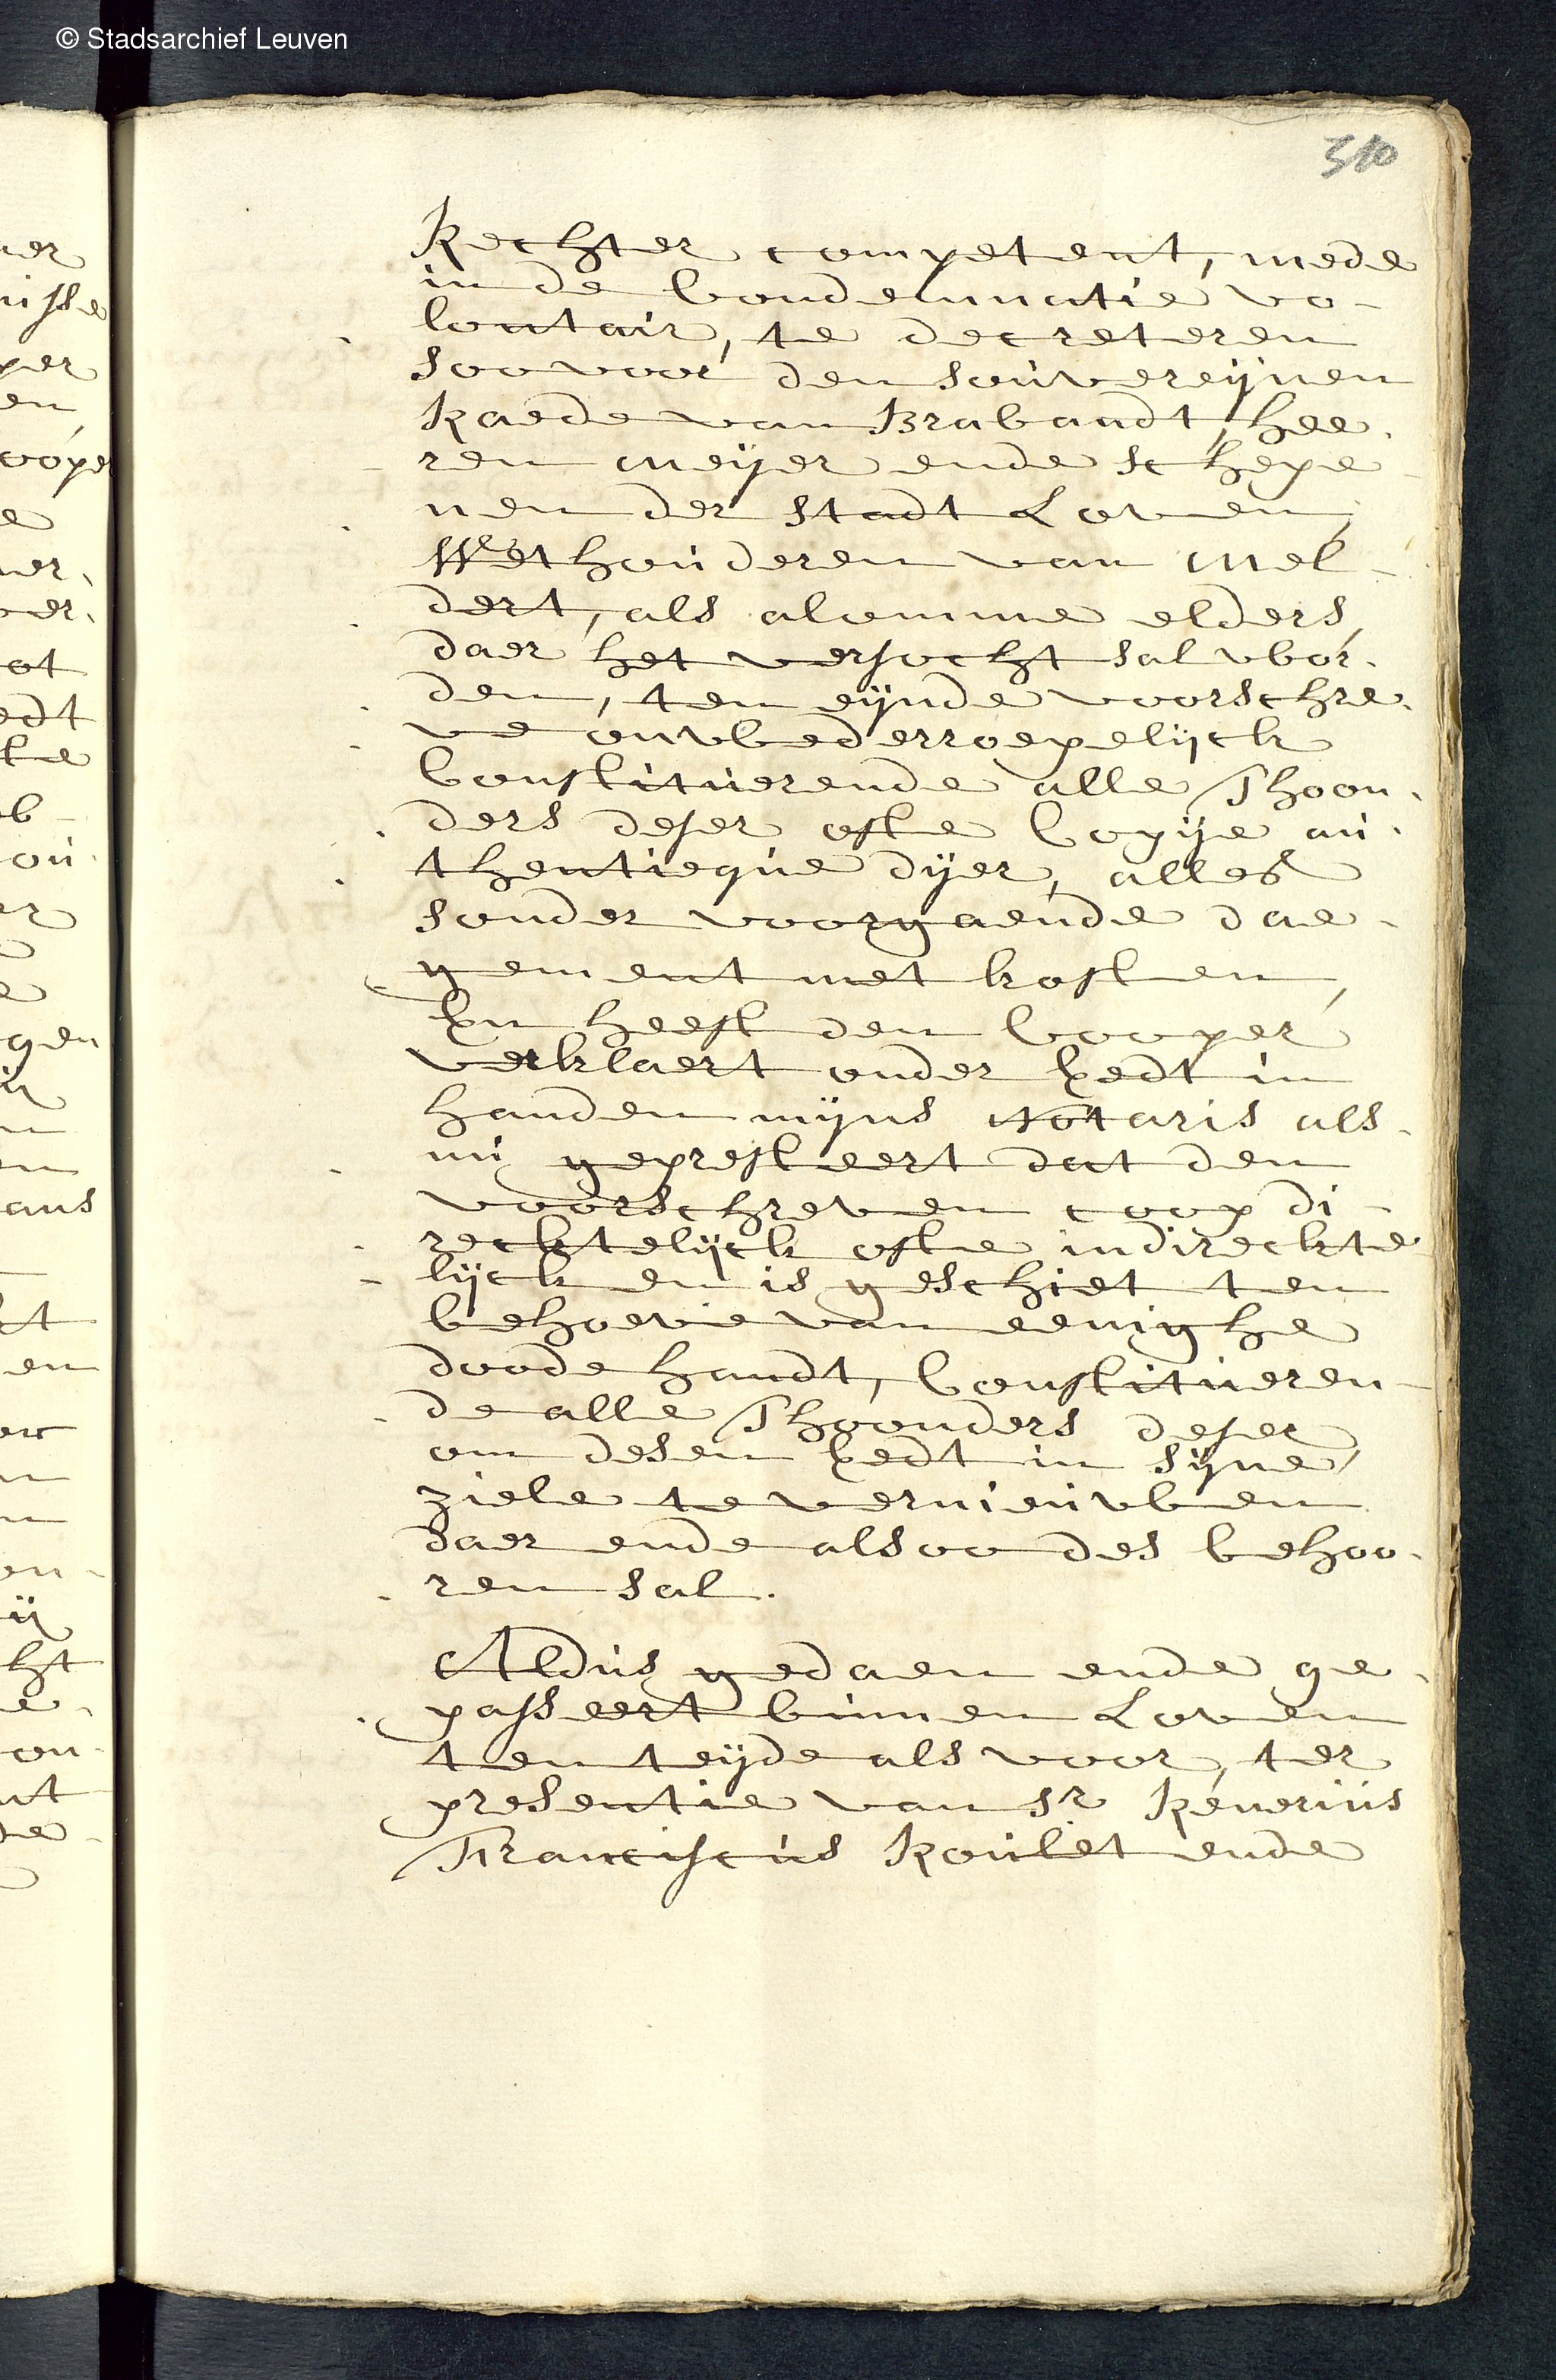 © Stadsarchief Leuven
310
Rechter competent, mede
in de Condemnatie vo-
lontair, te decreteren
soo voor den souvereijnen
Raede van Brabandt, hee-
ren meijer ende schepe-
nen der stadt Loven,
Wethouderen van Mel-
dert, als alomme elders,
daer het versocht sal wor-
den, ten eijnde voorschre-
ve onwederroepelijck
Constituerende alle Thoon-
ders deser ofte Copije au-
thentieque dijer, alles
sonder voorgaende dae-
gement met kosten,
En heeft den Cooper
verklaert onder Eedt in
handen mijns Notaris als-
nu gepresteert dat den
voorschreven coop di-
recktelijck ofte indireckte-
lijck en is geschiet ten
behoeve van eenighe
doode handt, Constitueren-
de alle Thoonders deser
om desen Eedt in sijne
ziele te vernieuwen
daer ende alsoo des behoo-
ren sal.
Aldus gedaen ende ge-
passeert binnen Loven
ten teijde als voor, ter
presentie van Sr Renerius
Franciscus Roulet ende